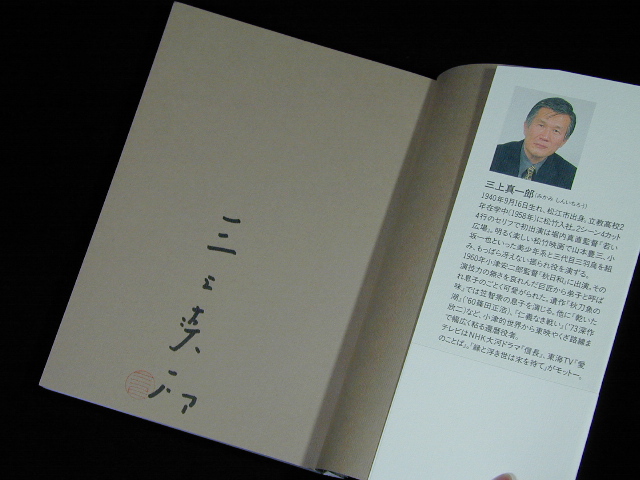 三上真一郎
三上真一郎(みかみ しんいちろう)
1940年9月16日生れ、松江市出身。立教高校2
年在学中(1958年)に松竹入社。2シーン4カット
4行のセリフで初出演は堀内真直監督「若い
広場」。明るく楽しい松竹映画で山本豊三、小
坂一也といった美少年系と三代目三羽烏を組
み、もっぱら冴えない振られ役を演ずる。
1960年小津安二郎監督「秋日和」に出演。その
演技力の無さを哀れんだ巨匠から弟子と呼ば
れ息子のごとく可愛がられた。遺作「秋刀魚の
味」では笠智衆の息子を演じる。他に「乾いた
湖」('60篠田正浩)、「仁義なき戦い」('73深作
欣二)など、小津的世界から東映やくざ路線ま
で幅広く粘る還暦役者。
テレビはNHK大河ドラマ「信長」、東海TV「愛
のことば」。「縁と浮き世は末を待て」がモットー。